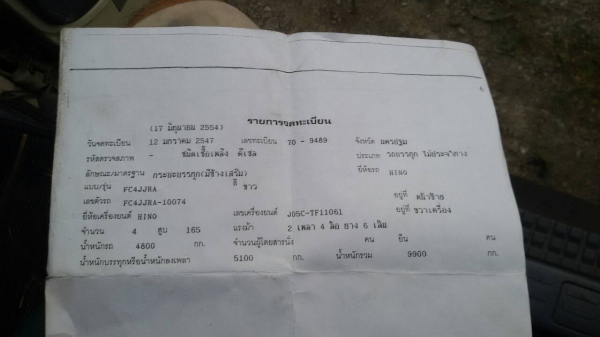 รายการจดทะเบียน
(17 มิถุนายน 2554)
วันจดทะเบียน 12 มกราคม 2547 เลขทะเบียน 70 - 9489 จังหวัด นครปฐม
รหัสตรวจสภาพ - ชนิดเชื้อเพลิง ดีเซล ประเภท รถบรรทุก ไม่ประจำทาง
ลักษณะ/มาตรฐาน กระบะบรรทุก(มีข้างเสริม) ยี่ห้อรถ HINO
แบบ/รุ่น FC4JJRA สี ขาว
เลขตัวรถ FC4JJRA-10074 อยู่ที่
ยี่ห้อเครื่องยนต์ HINO เลขเครื่องยนต์ J05C-TF11061 อยู่ที่ ขวาเครื่อง
จำนวน 4 สูบ 165 แรงม้า 2 เพลา 4 ล้อ ยาง 6 เส้น
น้ำหนักรถ 4800 กก. จำนวนผู้โดยสารนั่ง คน ยืน คน
น้ำหนักบรรทุกหรือน้ำหนักลงเพลา 5100 กก. น้ำหนักรวม 9900 กก.